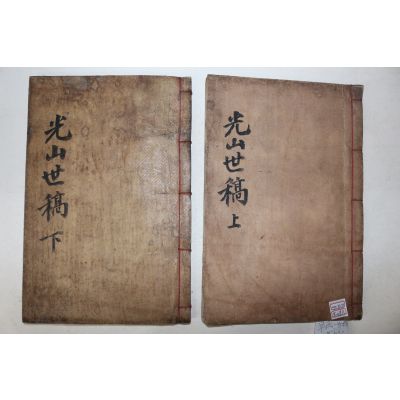 光山世稿 下
光山世稿 上